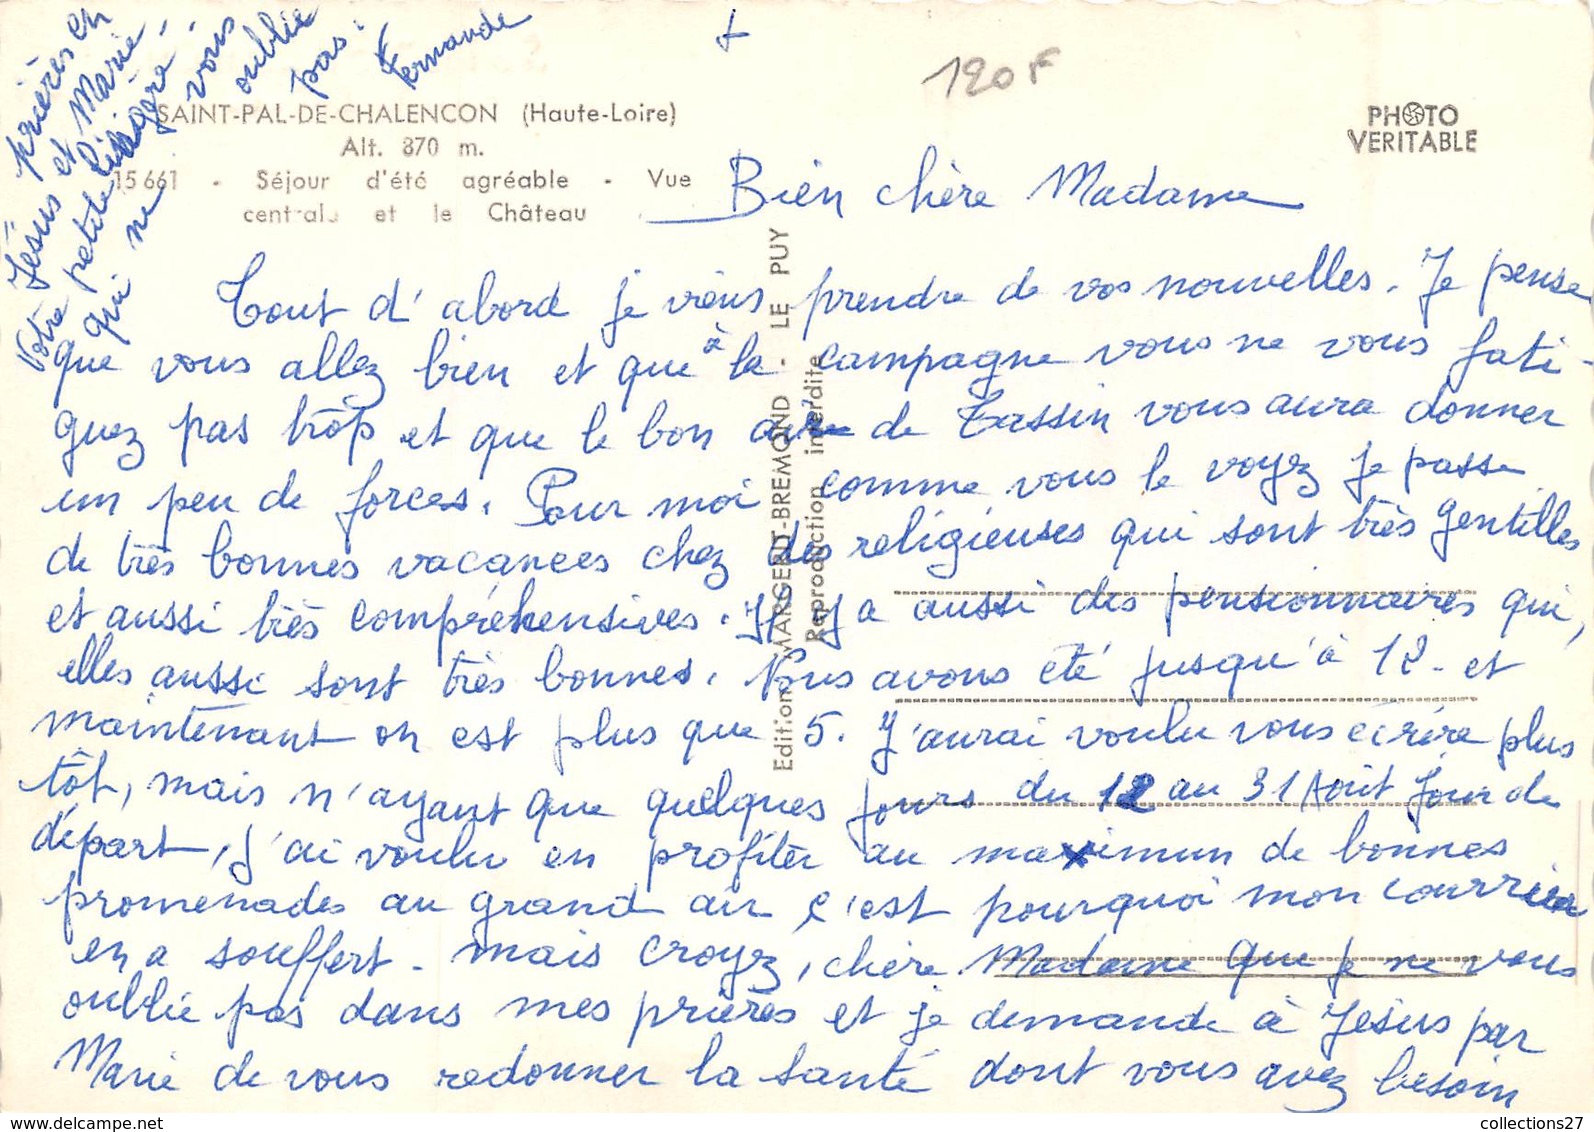 SAINT-PAL-DE-CHALENCON (Haute-Loire)
Alt. 870 m.
15661 - Séjour d'été agréable - Vue
centrale et le Château
PHOTO
VERITABLE
120F
Edition MARGERIT-BREMOND - LE PUY
Reproduction interdite
Bien chère Madame
Tout d'abord je viens prendre de vos nouvelles. Je pense
que vous allez bien et que à la campagne vous ne vous fati-
guez pas trop et que le bon air de Tassin vous aura donner
un peu de forces. Pour moi comme vous le voyez je passe
de très bonnes vacances chez des religieuses qui sont très gentilles
et aussi très compréhensives. Il y a aussi des pensionnaires qui,
elles aussi sont très bonnes. Nous avons été jusqu'à 12 - et
maintenant on est plus que 5. J'aurai voulu vous écrire plus
tôt, mais n'ayant que quelques jours du 12 au 31 Août jour de
départ, j'ai voulu en profiter au maximun de bonnes
promenades au grand air c'est pourquoi mon courrier
en a souffert - mais croyez, chère Madame que je ne vous
oublie pas dans mes prières et je demande à Jésus par
Marie de vous redonner la santé dont vous avez besoin
prières en
Jésus et Marie.
Votre petite lingère,
qui ne vous
oublie
pas.
Fernande
collections27